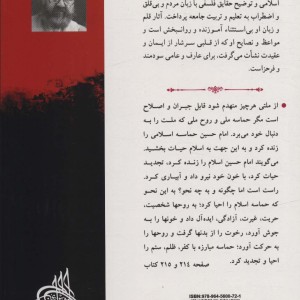 اسلامی و توضیح حقایق فلسفی با زبان مردم و بی‌قلق
و اضطراب به تعلیم و تربیت جامعه پرداخت. آثار قلم
و زبان او بی‌استثناء آموزنده و روانبخش است و
مواعظ و نصایح او که از قلبی سرشار از ایمان و
عقیدت نشأت می‌گرفت، برای عارف و عامی سودمند
و فرحزاست.
از ملتی هرچیز منهدم شود قابل جبران و اصلاح
است مگر حماسه ملی و روح ملی که ملت را به
دنبال خود می‌برد. امام حسین حماسه اسلامی را
زنده کرد و به این جهت به اسلام حیات بخشید.
می‌گویند امام حسین اسلام را زنده کرد، تجدید
حیات کرد، با خون خود نیرو داد و آبیاری کرد.
راست است اما چگونه و به چه نحو؟ به این نحو
که حماسه اسلام را احیا کرد: به روحها شخصیت،
حریت، غیرت، آزادگی، ایده‌آل داد و خونها را به
جوش آورد، رخوت را از بدنها گرفت و روحها را
به حرکت آورد؛ حماسه مبارزه با کفر، ظلم، ستم را
احیا و تجدید کرد.
صفحه ۲۱۴ و ۲۱۵ کتاب
ISBN: 978-964-5600-72-1